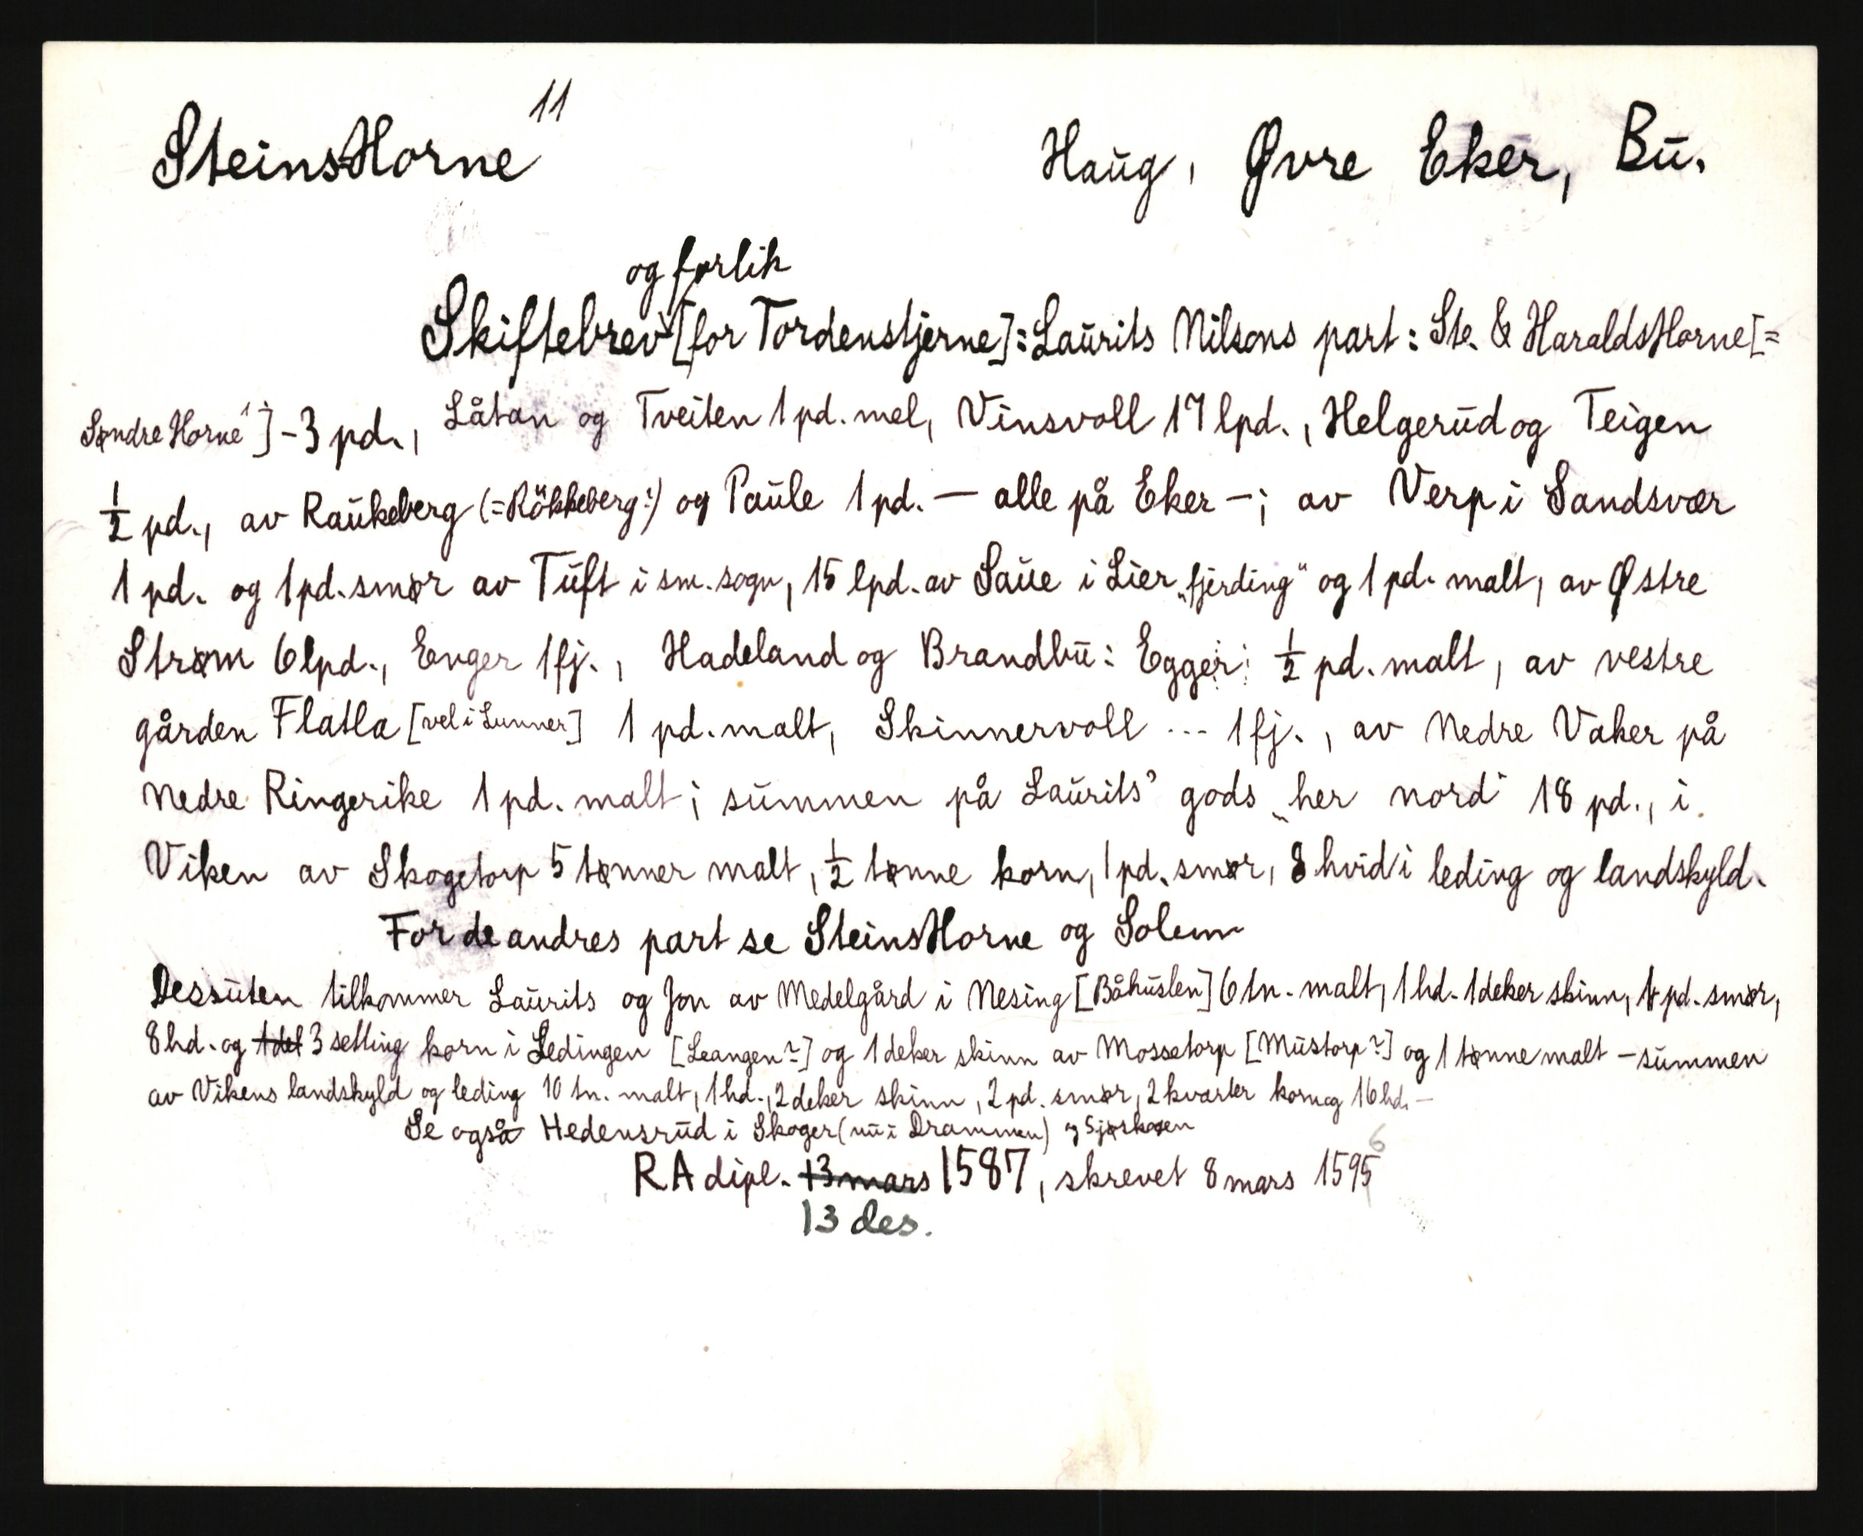 SteinsHorne 11 Haug, Øvre Eker, Bu.
og forlik
Skiftebrev [for Tordenstjerne]: Laurits Nilsons part: Ste. & HaraldsHorne [=
Søndre Horne 1] - 3 pd., Låtan og Tveiten 1 pd. mel, Vinsvoll 17 lpd., Helgerud og Teigen
½ pd., av Raukeberg (=Rökkeberg?) og Paule 1 pd. — alle på Eker —; av Verp i Sandsvær
1 pd. og 1 pd. smør av Tuft i sm. sogn, 15 lpd. av Saue i Lier „fjerding" og 1 pd. malt, av Østre
Strøm 6 lpd., Enger 1 fj., Hadeland og Brandbu: Egger: ½ pd. malt, av vestre
gården Flatla [vel i Lunner] 1 pd. malt, Skinnervoll ... 1 fj., av Nedre Vaker på
nedre Ringerike 1 pd. malt; summen på Laurits' gods „her nord" 18 pd., i
Viken av Skogetorp 5 tønner malt, ½ tønne korn, 1 pd. smør, 8 hvid i leding og landskyld.
For de andres part se SteinsHorne og Solem
Dessuten tilkommer Laurits og Jon av Medelgård i Nesing [Båhuslen] 6 tn. malt, 1 hd. 1 deker skinn, 1 pd. smør,
8 hd. og 1 del 3 setting korn i Ledingen [Leangen?] og 1 deker skinn av Mossetorp [Mustorp?] og 1 tønne malt — summen
av Vikens landskyld og leding 10 tn. malt, 1 hd., 2 deker skinn, 2 pd. smør, 2 kvarter korn og 16 hd. —
Se også Hedensrud i Skoger (nu i Drammen) og Sjøskogen
RA dipl. 13 mars 1587, skrevet 8 mars 1595 6
13 des.